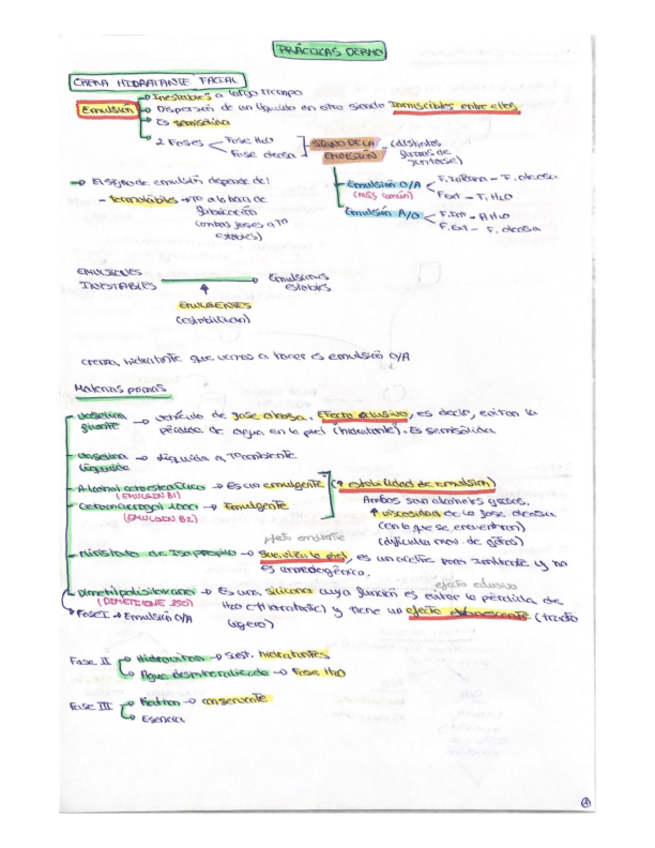 PRÁCTICAS DERMO
CREMA HIDRATANTE FACIAL
Emulsión
→ Inestables a largo tiempo
→ Dispersión de un líquido en otro siendo inmiscibles entre ellos
→ Es semisólida
→ 2 Fases < Fase H2O
Fase oleosa
SIGNO DE LA EMULSIÓN (distintas formas de juntarse)
→ El signo de emulsión depende de:
- termolábiles → Tª a la hora de fabricación (ambas fases a Tª estables)
Emulsión O/A (más común) < F. Interna - F. oleosa
F.ext - F. H2O
Emulsión A/O < F. Int - F. H2O
F. Ext - F. oleosa
EMULSIONES INESTABLES → Emulsiones estables
↑
EMULGENTES
(estabilizan)
crema hidratante que vamos a hacer es emulsión O/A
Materias primas
Vaselina filante → vehículo de fase oleosa. Efecto oclusivo, es decir, evitan la
pérdida de agua en la piel (hidratante). Es semisólida
Vaselina líquida → líquida a Tª ambiente
Alcohol cetoestearílico → Es un emulgente
(EMULGIN B1)
Cetomacrogol 1000 → Emulgente
(EMULGIN B2)
(↑ estabilidad de emulsión)
Ambos son alcoholes grasos,
↑ viscosidad de la fase oleosa
(en la que se encuentran)
(dificulta mov. de gotas)
efecto emoliente
Miristato de Isopropilo → Suaviza la piel, es un aceite no
es comedogénico.
efecto oclusivo
Dimetilpolisiloxano → Es una silicona cuya función es evitar la pérdida de
(DIMETICONE 350)
H2O (Hidratante) y tiene un efecto (tacto
ligero)
Fase I → Emulsión O/A
Fase II → Hidroviton → Sust. hidratantes
→ Agua desmineralizada → Fase H2O
Fase III → Kathon → conservante
→ Esencia